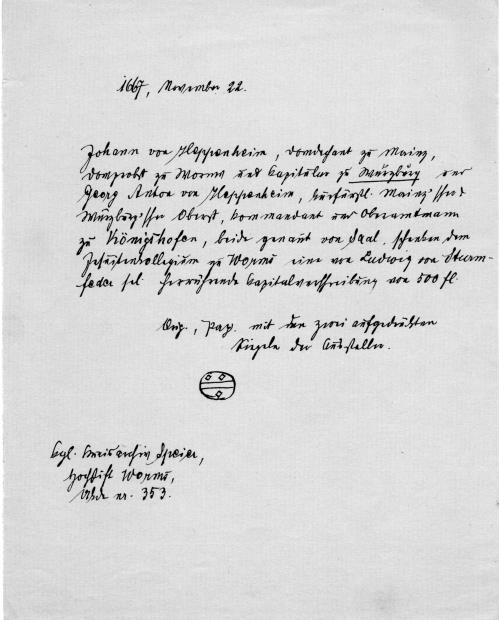 1667, November 22.
Johann von Heppenheim, Domdechant zu Mainz,
Domprobst zu Worms und Capitular zu Würzburg und
Georg Anton von Heppenheim, kurfürstl. Mainz'scher
Würzburg'scher Oberst, Commandant und Oberamtmann
zu Königshofen, beide genannt von Saal, schenken dem
Jesuitenkollegium zu Worms eine von Ludwig von Sturm-
feder sel. herrührende Capitalverschreibung von 500 fl.
Orig., Pap. mit den zwei aufgedrückten
Siegeln der Aussteller.
Kgl. Kreisarchiv Speier,
Hochstift Worms,
Urk. nr. 353.